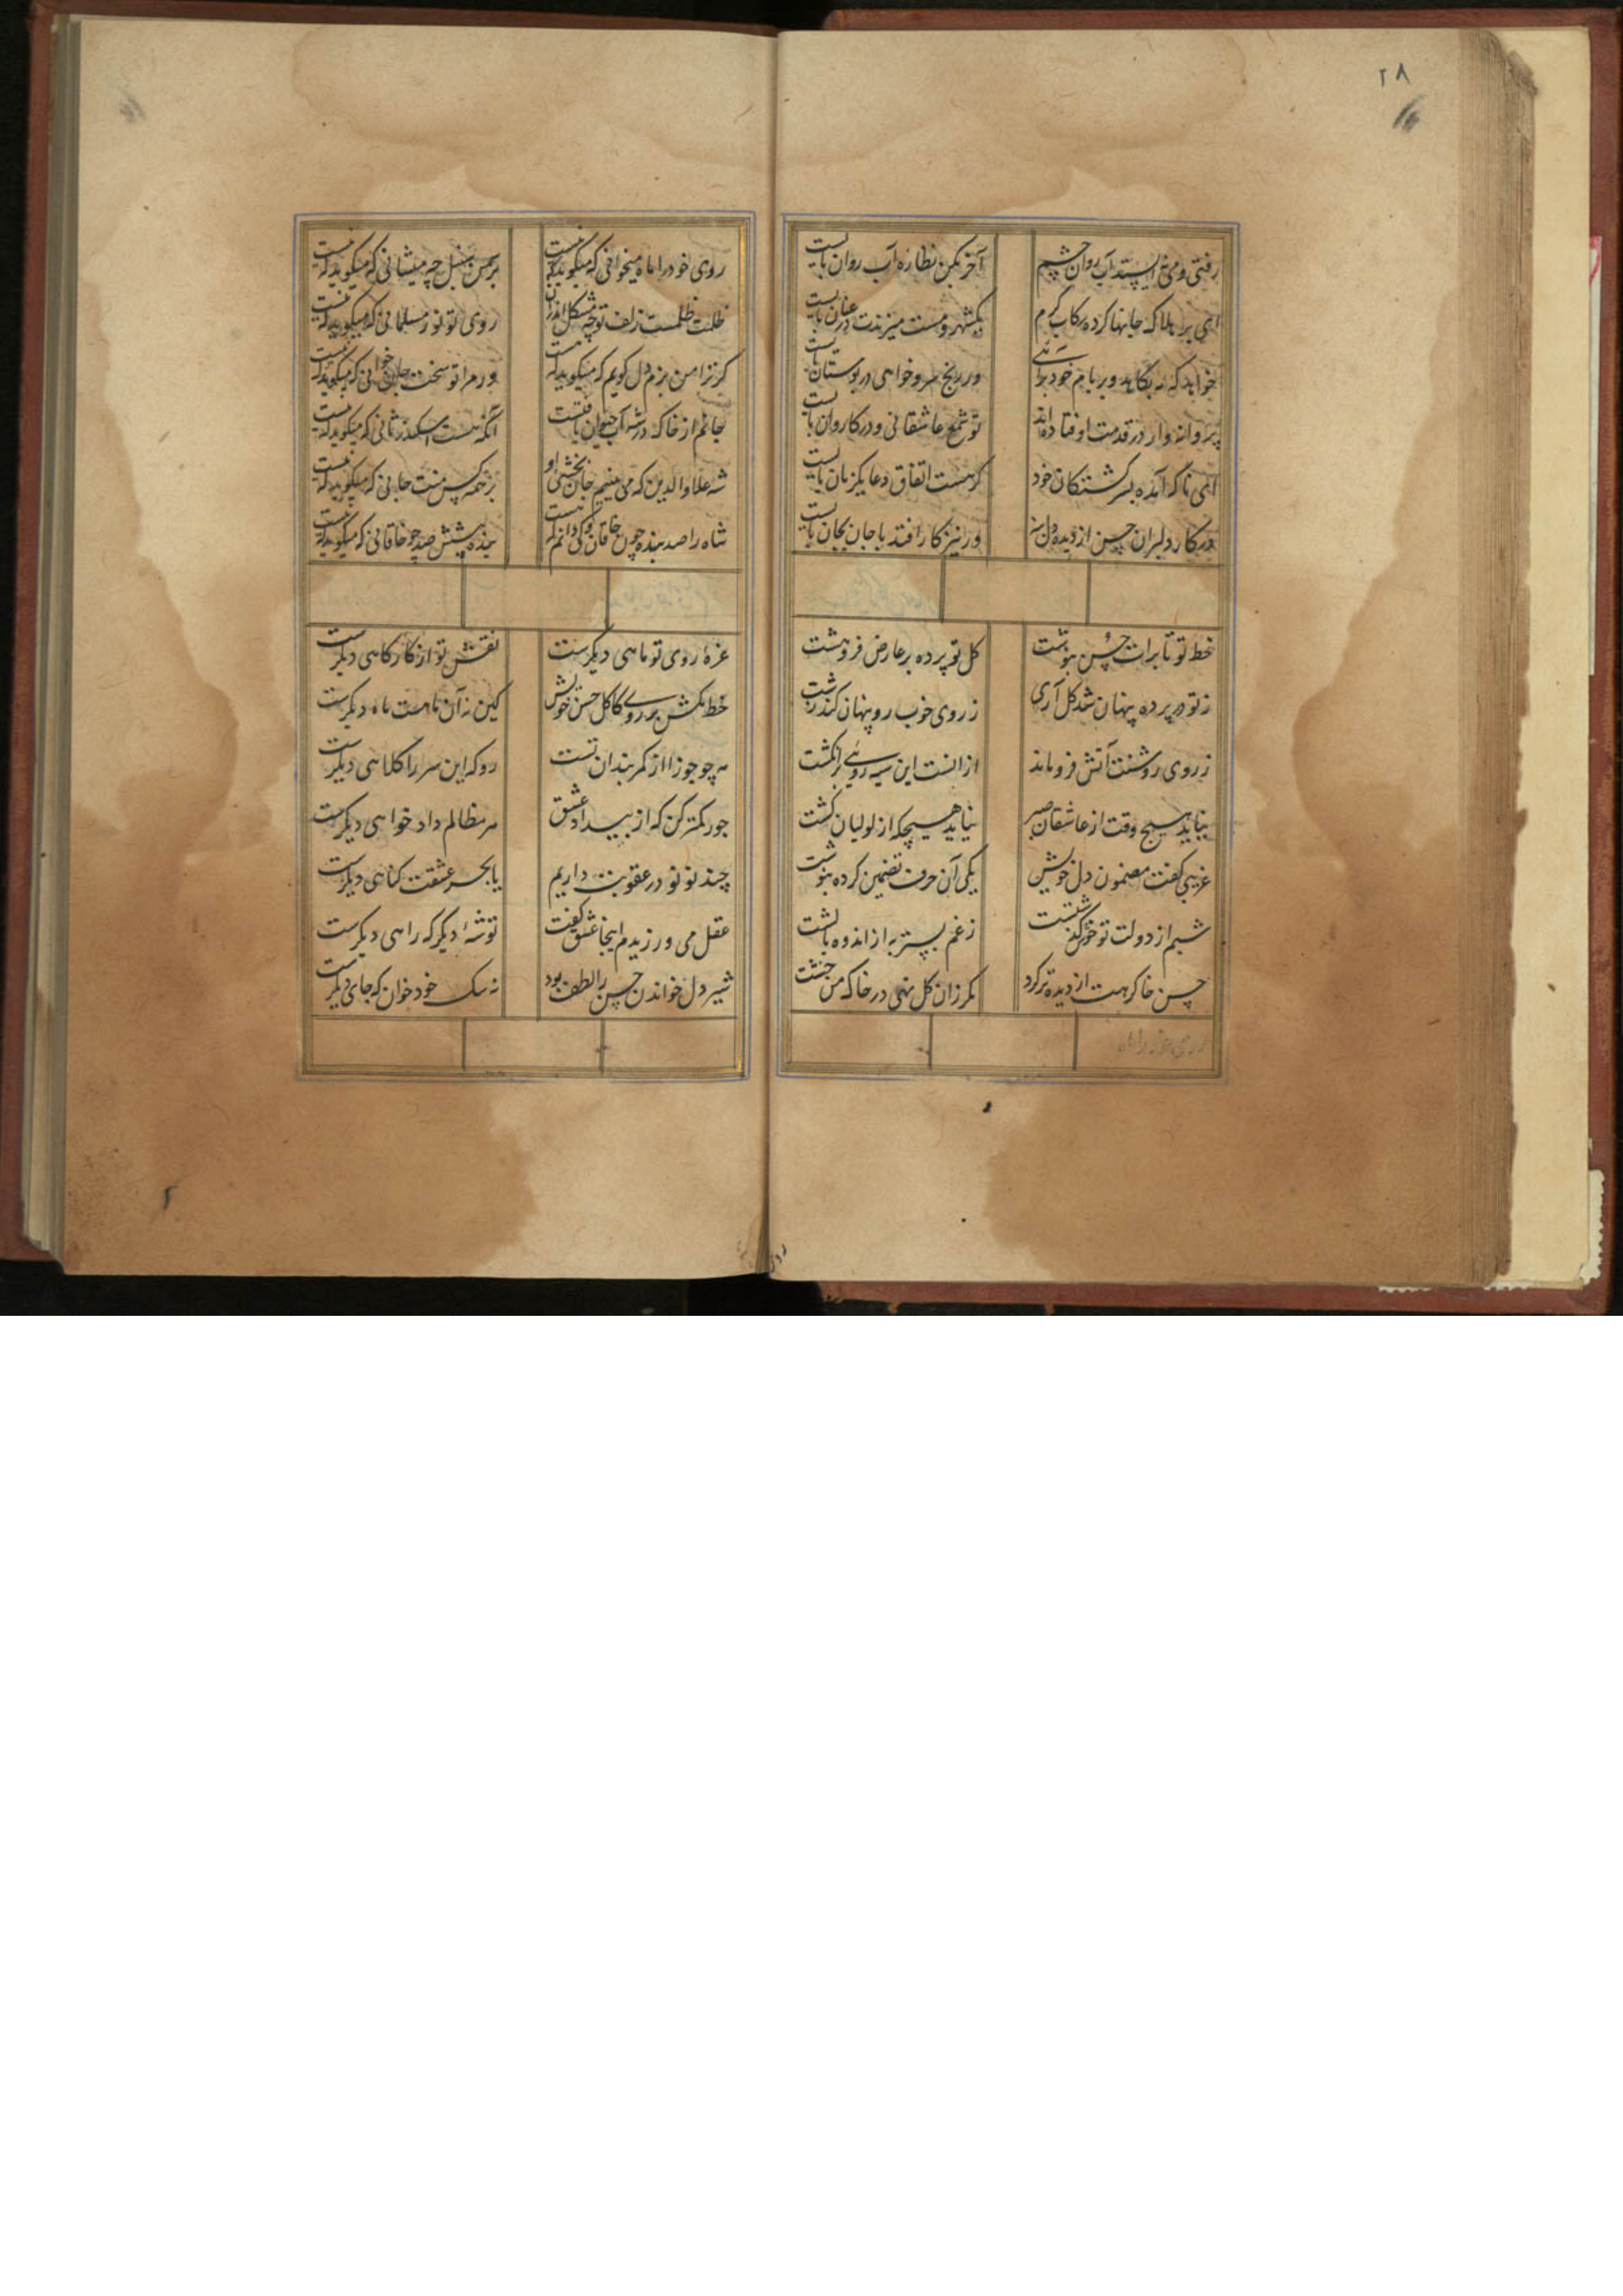 ۲۸
رفتی و می نه ایستد آب روان چشم آخر بکن نظاره آب روان بایست
ای بر بلا که جانها کرده رکاب گرم یکشهر و مست میزندت در عنان بایست
خواهد که نه بکاید ور بام خود برای ور رنج سرو خواهی در بوستان بایست
پروانه وار در قدمت اوفتاده اند تو شمع عاشقانی و در کاروان بایست
ای تا که آمده بسر کشتکان خود گر هست اتفاق دعا یکزمان بایست
در کار دلبران حسن از دیده دل بنه ور نیز کار افتد با جان بجان بایست
خط تو تا برات حسن بنوشت کل تو پرده بر عارض فروهشت
ز تو در پرده پنهان شد کل آری ز روی خوب رو پنهان کند زشت
ز روی روشنت آتش فروماند از انست این سیه روئی بر انگشت
نیاید هیچ وقت از عاشقان صبر نیاید هیچکه از لولیان کشت
غریبی گفت مضمون دل خویش یکی آن حرف تضمین کرده بنوشت
شبم از دولت تو خوش گذشتست ز غم بستر به از اندوه بالشت
حسن خاک رهت از دیده تر کرد مگر زان کل نهی در خاک من خشت
روی خود را ماه میخوانی که میگوید که نیست بر چمن سنبل چه میفشانی که میگوید که نیست
ظلمت ظلمست زلف تو چه مشکل اندران روی تو نور مسلمانی که میگوید که نیست
گر ترا من بزم دل گویم که میگوید که هست ور مرا تو سخت جان خوانی که میگوید که نیست
جانم از خاک در شه آب حیوان یافتست آنکه هست اسکندر ثانی که میگوید که نیست
شه علاوالدین که می بینم جان بخشی او بر همه کس منت جانی که میگوید که نیست
شاه را صد بنده چون خاقان و کی دانم که هست بنده پیشش صد چو خاقانی که میگوید که نیست
غره روی تو ماهی دیگرست نقش تو از کارگاهی دیگرست
خط مکش بر روی کاکل حسن خویش کین نه آن ماهست ماه دیگرست
مه چو جوزا از کمر بندان تست رو که این سر را کلاهی دیگرست
جور کمتر کن که از بیداد عشق هر مظالم داد خواهی دیگرست
چند نو نو در عقوبت داریم یا بجز عشقت گناهی دیگرست
عقل می ورزیدم اینجا عشق گفت توشهٔ دیگر که راهی دیگرست
شیر دل خواندن حسن را لطف بود نه سک خود خوان که جای دیگرست